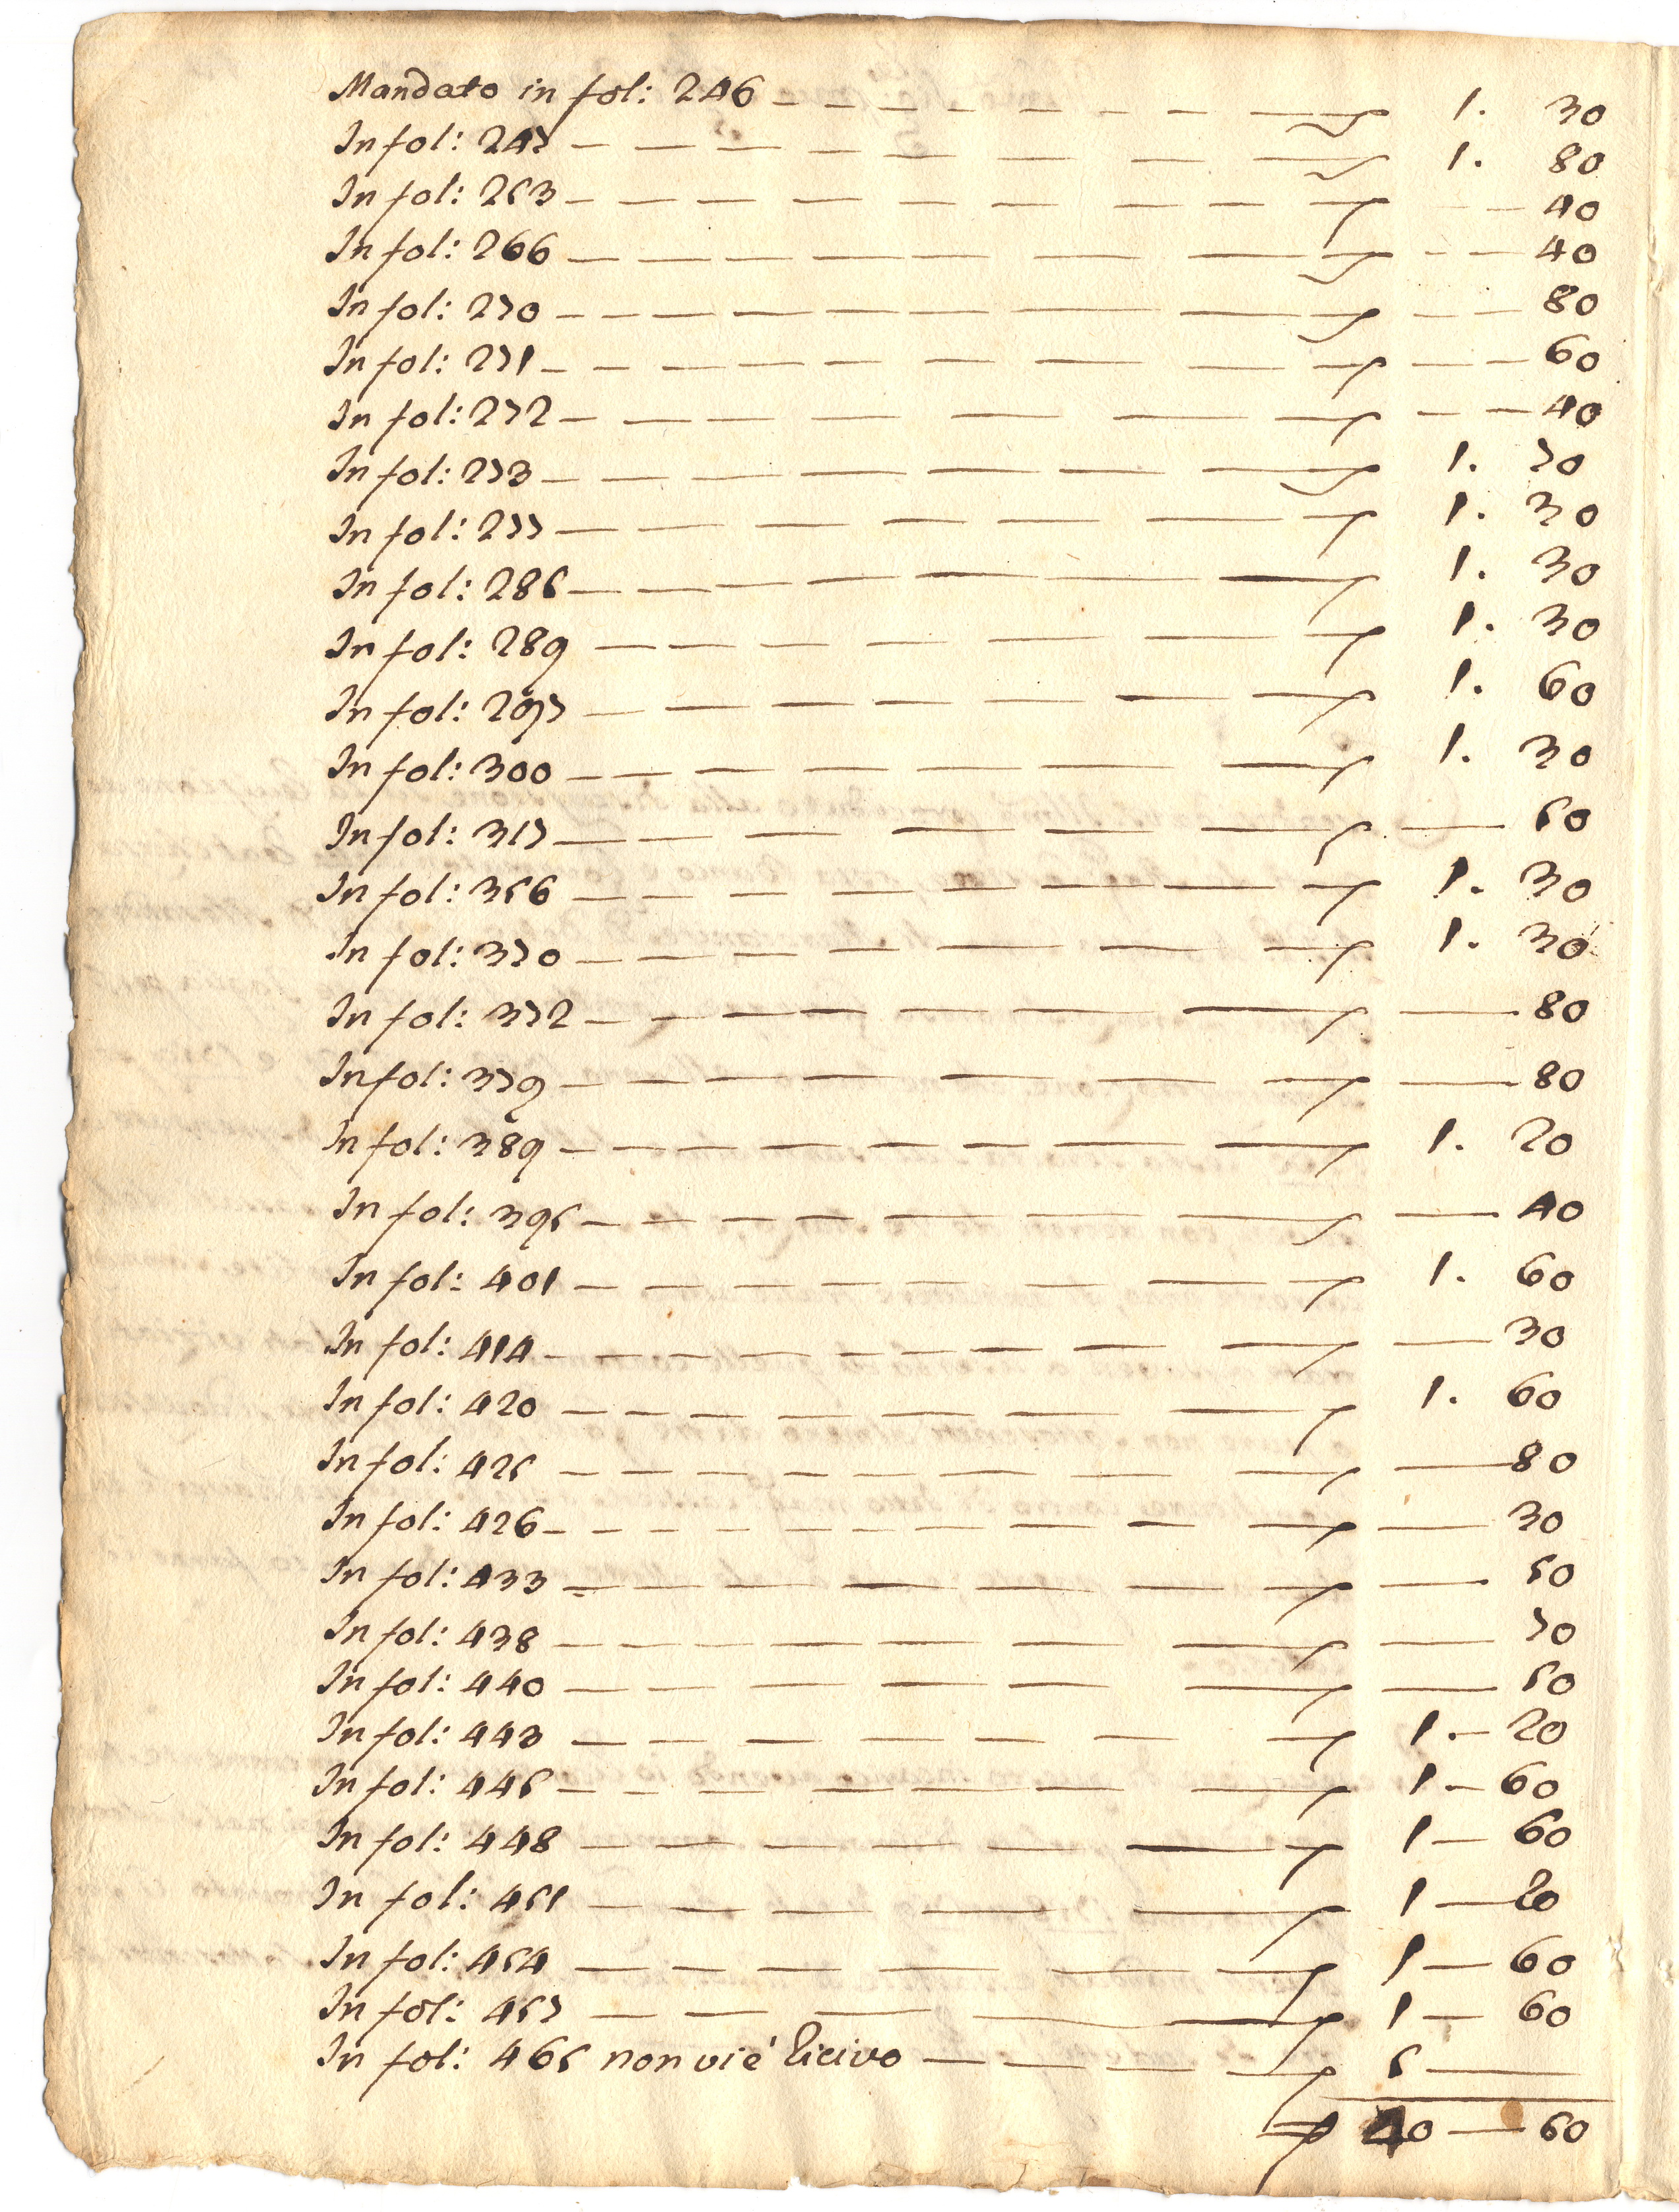 Mandato in fol: 246 - - - - - - - - 1. 30
In fol: 247 - - - - - - - - 1. 80
In fol: 253 - - - - - - - - 40
In fol: 266 - - - - - - - - 40
In fol: 270 - - - - - - - - 80
In fol: 271 - - - - - - - - 60
In fol: 272 - - - - - - - - 40
In fol: 273 - - - - - - - - 1. 70
In fol: 277 - - - - - - - - 1. 30
In fol: 285 - - - - - - - - 1. 30
In fol: 289 - - - - - - - - 1. 30
In fol: 297 - - - - - - - - 1. 60
In fol: 300 - - - - - - - - 1. 30
In fol: 317 - - - - - - - - 50
In fol: 356 - - - - - - - - 1. 30
In fol: 370 - - - - - - - - 1. 30
In fol: 372 - - - - - - - - 80
In fol: 379 - - - - - - - - 80
In fol: 389 - - - - - - - - 1. 20
In fol: 395 - - - - - - - - 40
In fol: 401 - - - - - - - - 1. 60
In fol: 414 - - - - - - - - 30
In fol: 420 - - - - - - - - 1. 60
In fol: 425 - - - - - - - - 80
In fol: 426 - - - - - - - - 30
In fol: 433 - - - - - - - - 50
In fol: 438 - - - - - - - - 70
In fol: 440 - - - - - - - - 50
In fol: 443 - - - - - - - - 1.- 20
In fol: 445 - - - - - - - - 1 - 60
In fol: 448 - - - - - - - - 1 - 60
In fol: 451 - - - - - - - - 1 - 20
In fol: 454 - - - - - - - - 1 - 60
In fol: 457 - - - - - - - - 1 - 60
In fol: 465 non vi è Ricivo - - - - 5 -
40 - 60